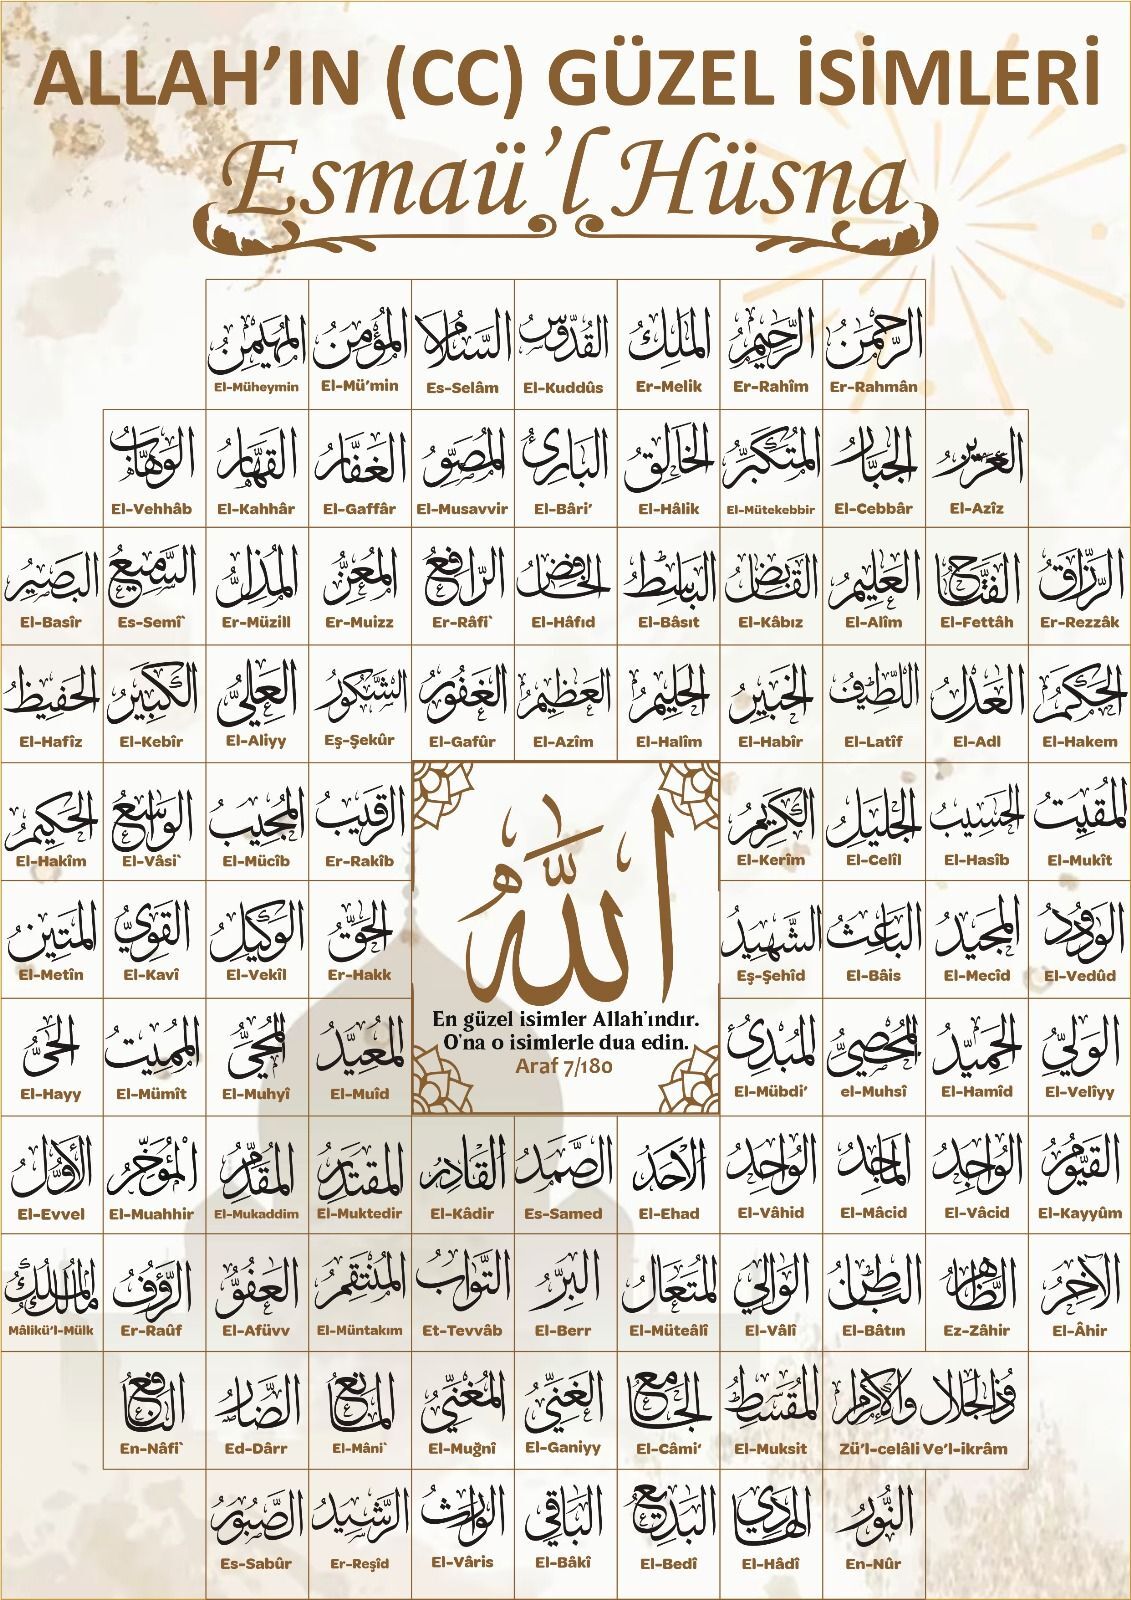 ALLAH’IN (CC) GÜZEL İSİMLERİ
Esmaü’l Hüsna
الرَّحْمٰنُ الرَّحِيمُ المَلِكُ القُدُّوسُ السَّلَامُ المُؤْمِنُ المُهَيْمِنُ
Er-Rahmân Er-Rahîm Er-Melik El-Kuddûs Es-Selâm El-Mü’min El-Müheymin
العَزِيزُ الجَبَّارُ المُتَكَبِّرُ الخَالِقُ البَارِئُ المُصَوِّرُ الغَفَّارُ القَهَّارُ الوَهَّابُ
El-Azîz El-Cebbâr El-Mütekebbir El-Hâlik El-Bâri’ El-Musavvir El-Gaffâr El-Kahhâr El-Vehhâb
الرَّزَّاقُ الفَتَّاحُ العَلِيمُ القَابِضُ البَاسِطُ الخَافِضُ الرَّافِعُ المُعِزُّ المُذِلُّ السَّمِيعُ البَصِيرُ
Er-Rezzâk El-Fettâh El-Alîm El-Kâbız El-Bâsıt El-Hâfıd Er-Râfi` Er-Muizz Er-Müzill Es-Semî` El-Basîr
الحَكَمُ العَدْلُ اللَّطِيفُ الخَبِيرُ الحَلِيمُ العَظِيمُ الغَفُورُ الشَّكُورُ العَلِيُّ الكَبِيرُ الحَفِيظُ
El-Hakem El-Adl El-Latîf El-Habîr El-Halîm El-Azîm El-Gafûr Eş-Şekûr El-Aliyy El-Kebîr El-Hafîz
المُقِيتُ الحَسِيبُ الجَلِيلُ الكَرِيمُ الرَّقِيبُ المُجِيبُ الوَاسِعُ الحَكِيمُ
El-Mukît El-Hasîb El-Celîl El-Kerîm Er-Rakîb El-Mücîb El-Vâsi` El-Hakîm
الوَدُودُ المَجِيدُ البَاعِثُ الشَّهِيدُ الحَقُّ الوَكِيلُ القَوِيُّ المَتِينُ
El-Vedûd El-Mecîd El-Bâis Eş-Şehîd Er-Hakk El-Vekîl El-Kavî El-Metîn
الله
En güzel isimler Allah’ındır.
O’na o isimlerle dua edin.
Araf 7/180
الوَلِيُّ الحَمِيدُ المُحْصِي المُبْدِئُ المُعِيدُ المُحْيِي المُمِيتُ الحَيُّ
El-Velîyy El-Hamîd el-Muhsî El-Mübdi’ El-Muîd El-Muhyî El-Mümît El-Hayy
القَيُّومُ الوَاجِدُ المَاجِدُ الوَاحِدُ الأَحَدُ الصَّمَدُ القَادِرُ المُقْتَدِرُ المُقَدِّمُ المُؤَخِّرُ الأَوَّلُ
El-Kayyûm El-Vâcid El-Mâcid El-Vâhid El-Ehad Es-Samed El-Kâdir El-Muktedir El-Mukaddim El-Muahhir El-Evvel
الآخِرُ الظَّاهِرُ البَاطِنُ الوَالِي المُتَعَالُ البَرُّ التَّوَّابُ المُنْتَقِمُ العَفُوُّ الرَّؤُفُ مَالِكُ المُلْكِ
El-Âhir Ez-Zâhir El-Bâtın El-Vâlî El-Müteâlî El-Berr Et-Tevvâb El-Müntakım El-Afüvv Er-Raûf Mâlikü’l-Mülk
ذُو الجَلَالِ وَالإِكْرَامِ المُقْسِطُ الجَامِعُ الغَنِيُّ المُغْنِيُّ المَانِعُ الضَّارُّ النَّافِعُ
Zü’l-celâli Ve’l-ikrâm El-Muksit El-Câmi’ El-Ganiyy El-Muğnî El-Mâni` Ed-Dârr En-Nâfi`
النُّورُ الهَادِي البَدِيعُ البَاقِي الوَارِثُ الرَّشِيدُ الصَّبُورُ
En-Nûr El-Hâdî El-Bedî El-Bâkî El-Vâris Er-Reşîd Es-Sabûr